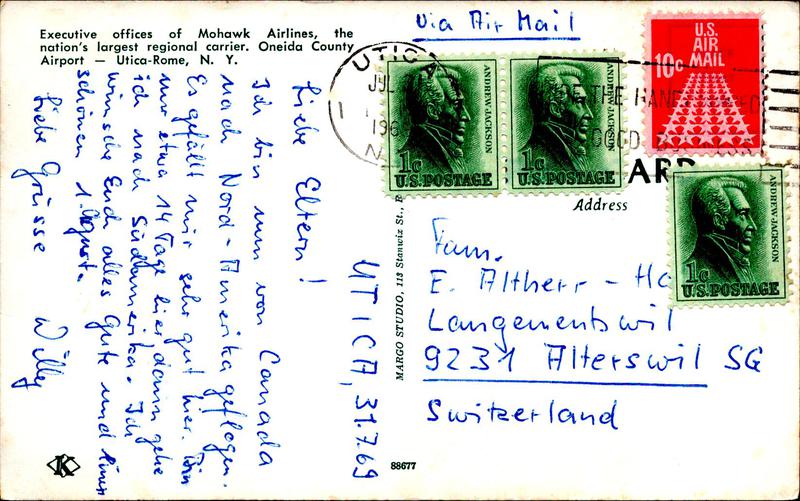 Executive offices of Mohawk Airlines, the
nation's largest regional carrier. Oneida County
Airport — Utica-Rome, N. Y.
Via Air Mail
UTICA
JUL
196
N
THE HAND
U.S.
AIR
MAIL
10c
ANDREW JACKSON
1c
U.S. POSTAGE
ANDREW JACKSON
1c
U.S. POSTAGE
ANDREW JACKSON
1c
U.S. POSTAGE
ARD
Address
UTICA, 31.7.69
Liebe Eltern!
Ich bin nun von Canada
nach Nord-Amerika geflogen.
Es gefällt mir sehr gut hier. Bin
nur etwa 14 Tage hier dann gehe
ich nach Südamerika. Ich
wünsche Euch alles Gute und einen
schönen 1. August.
Liebe Grüsse Willy
Fam.
E. Altherr - H
Langenentswil
9231 Alterswil SG
Switzerland
MARGO STUDIO, 113 Stanwix St.,
K
88677